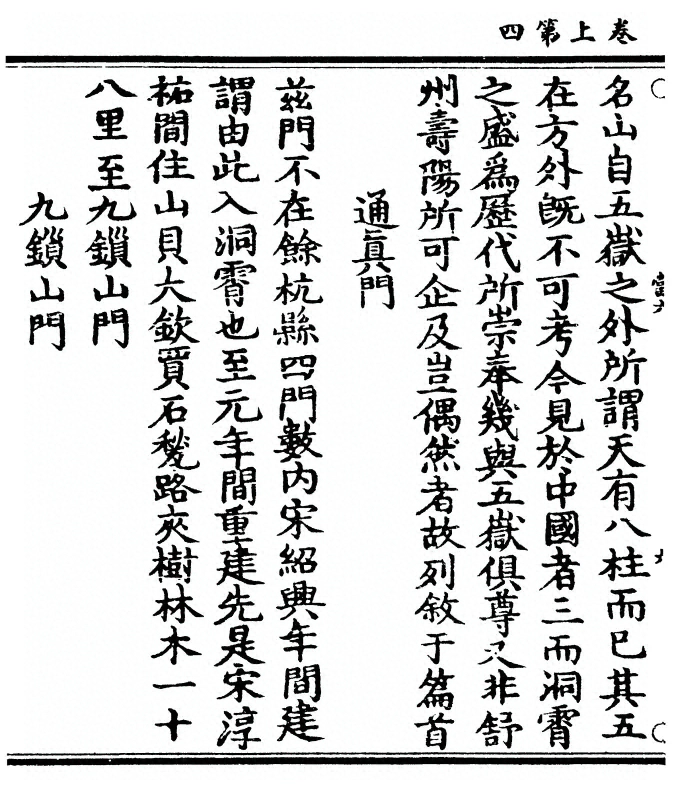 卷上第四
名山自五嶽之外所謂天有八柱而已其五
在方外旣不可考今見於中國者三而洞霄
之盛爲歷代所崇奉幾與五嶽俱尊又非舒
州壽陽所可企及豈偶然者故列敘于篇首
通眞門
茲門不在餘杭縣四門數内宋紹興年間建
謂由此入洞霄也至元年間重建先是宋淳
祐間住山貝大欽買石甃路夾樹林木一十
八里至九鎖山門
九鎖山門